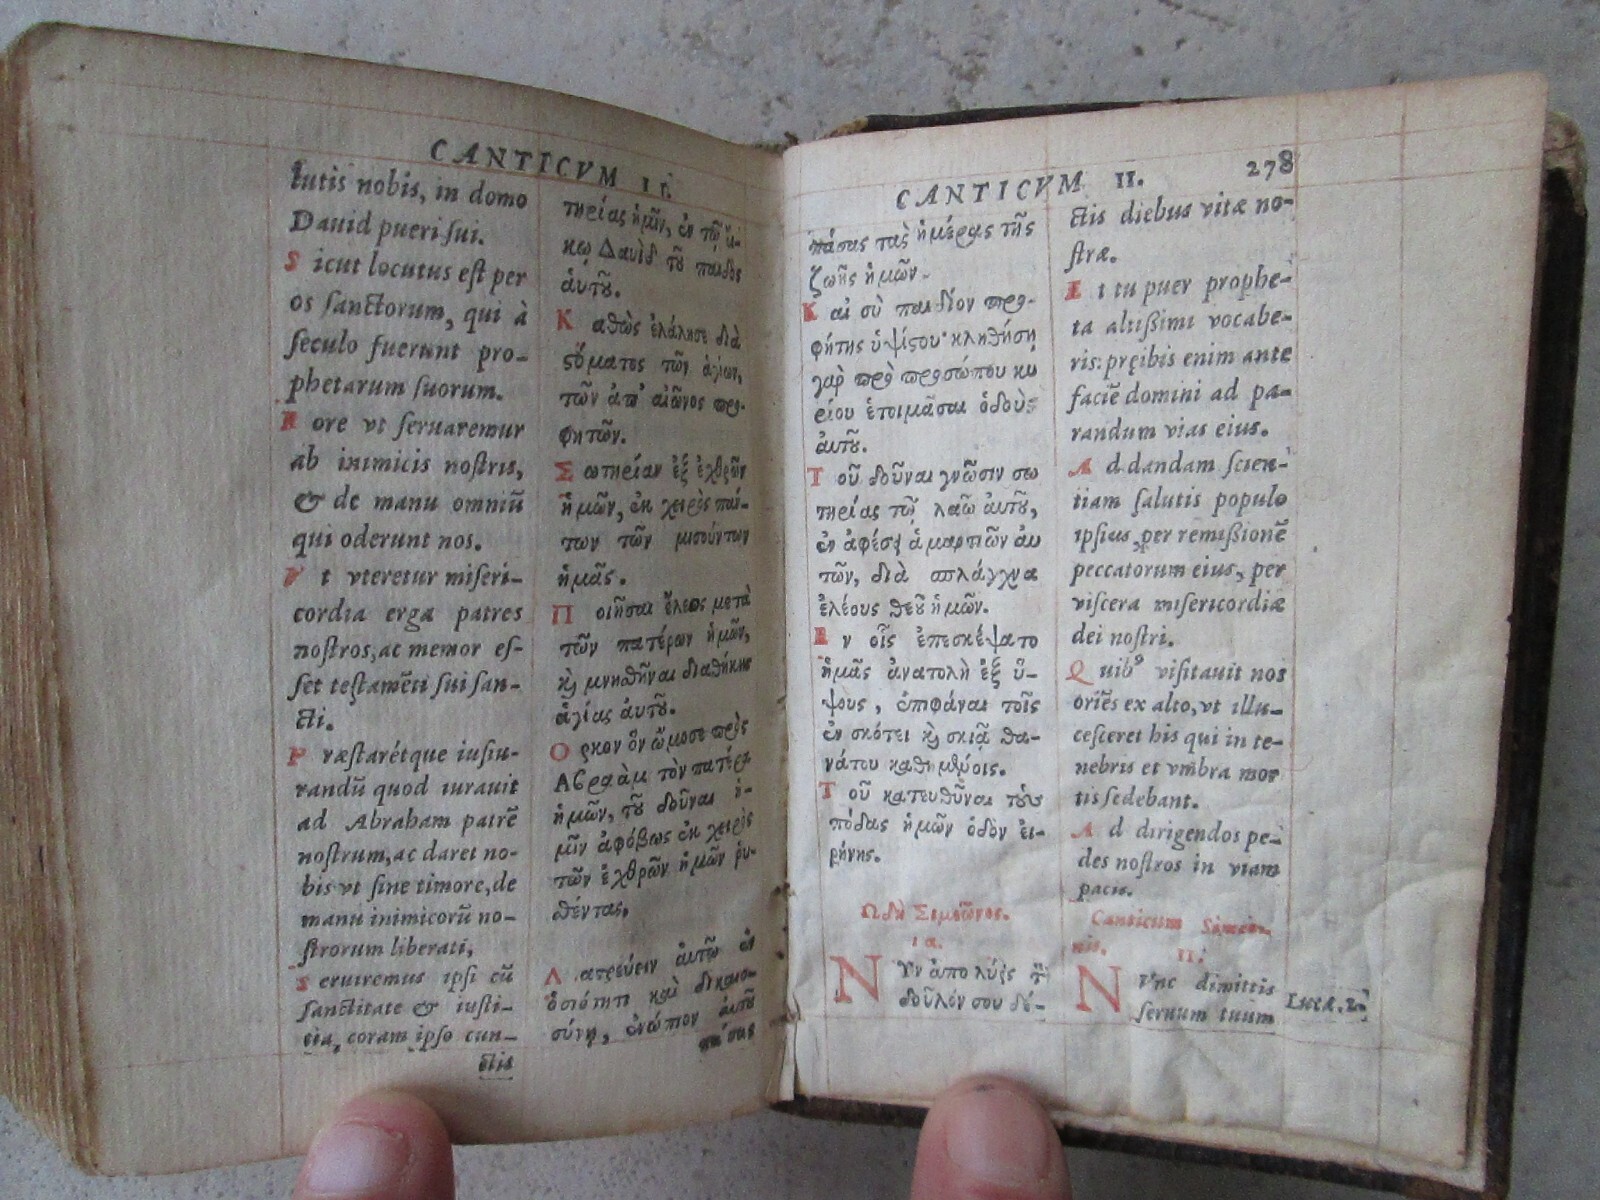 CANTICVM II.
lutis nobis, in domo
Dauid pueri sui.
Sicut locutus est per
os sanctorum, qui à
seculo fuerunt pro-
phetarum suorum.
Fore vt seruaremur
ab inimicis nostris,
& de manu omniũ
qui oderunt nos.
Vt vteretur miseri-
cordia erga patres
nostros, ac memor es-
set testamẽti sui san-
cti.
Præstarétque iusiu-
randũ quod iurauit
ad Abraham patrẽ
nostrum, ac daret no-
bis vt sine timore, de
manu inimicorũ no-
strorum liberati,
Seruiremus ipsi cũ
sanctitate & iusti-
cia, coram ipso cun-
ctis
τηρίας ἡμῖν, ἐν τῷ οἴ-
κῳ Δαυὶδ τοῦ παιδὸς
αὑτοῦ.
Καθὼς ἐλάλησε διὰ
στόματος τῶν ἁγίων,
τῶν ἀπ' αἰῶνος προ-
φητῶν.
Σωτηρίαν ἐξ ἐχθρῶν
ἡμῶν, ἐκ χειρὸς πάν-
των τῶν μισούντων
ἡμᾶς.
Ποιῆσαι ἔλεος μετὰ
τῶν πατέρων ἡμῶν,
καὶ μνησθῆναι διαθήκης
ἁγίας αὑτοῦ.
Ορκον ὃν ὤμοσε πρὸς
Αβραὰμ τὸν πατέρα
ἡμῶν, τοῦ δοῦναι ἡ-
μῖν ἀφόβως ἐκ χειρὸς
τῶν ἐχθρῶν ἡμῶν ῥυ-
σθέντας.
Λατρεύειν αὐτῷ ἐν
ὁσιότητι καὶ δικαιο-
σύνῃ, ἐνώπιον αὐτοῦ
πάσας
CANTICVM II. 278
πάσας τὰς ἡμέρας τῆς
ζωῆς ἡμῶν.
Καὶ σὺ παιδίον προ-
φήτης ὑψίστου κληθήσῃ
γὰρ πρὸ προσώπου κυ
ρίου ἑτοιμᾶσαι ὁδοὺς
αὑτοῦ.
Τοῦ δοῦναι γνῶσιν σω
τηρίας τῷ λαῷ αὑτοῦ,
ἐν ἀφέσει ἁμαρτιῶν αὐ
τῶν, διὰ σπλάγχνα
ἐλέους θεοῦ ἡμῶν.
Εν οἷς ἐπεσκέψατο
ἡμᾶς ἀνατολὴ ἐξ ὕ-
ψους, ἐπιφάναι τοῖς
ἐν σκότει καὶ σκιᾷ θα-
νάτου καθημένοις.
Τοῦ κατευθῦναι τοὺς
πόδας ἡμῶν ὁδὸν εἰ-
ρήνης.
Ωδὴ Σιμεῶνος.
ια.
ΝΥν ἀπολύεις τὸν
δοῦλόν σου δέ-
ctis diebus vitæ no-
stræ.
Et tu puer prophe-
ta altißimi vocabe-
ris: pręibis enim ante
faciẽ domini ad pa-
randum vias eius.
Ad dandam scien-
tiam salutis populo
ipsius, per remißionẽ
peccatorum eius, per
viscera misericordiæ
dei nostri.
Quibꝰ visitauit nos
oriẽs ex alto, vt illu-
cesceret his qui in te-
nebris et vmbra mor
tis sedebant.
Ad dirigendos pe-
des nostros in viam
pacis.
Canticum Simeo-
nis.
11.
NVnc dimittis
seruum tuum
Lucæ. 2.